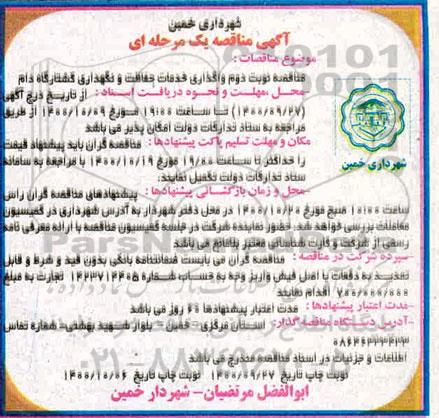 شهرداری خمین
آگهی مناقصه یک مرحله ای
موضوع مناقصات :
مناقصه نوبت دوم واگذاری خدمات حفاظت و نگهداری کشتارگاه دام
محل ،مهلت و نحوه دریافت اسناد : از تاریخ درج آگهی
(۱۴۰۰/۰۹/۲۷) تا ساعت ۱۹:۰۰ مورخ ۱۴۰۰/۱۰/۰۹ از طریق
مراجعه به ستاد تدارکات دولت امکان پذیر می باشد
مکان و مهلت تسلیم پاکت پیشنهادها : مناقصه گران باید پیشنهاد قیمت
را حداکثر تا ساعت ۱۹:۰۰ مورخ ۱۴۰۰/۱۰/۱۹ با مراجعه به سامانه
ستاد تدارکات دولت تکمیل نمایند.
-محل و زمان بازگشائی پیشنهادها : پیشنهادهای مناقصه گران راس
ساعت ۱۰:۰۰ صبح مورخ ۱۴۰۰/۱۰/۲۰ در محل دفتر شهردار به آدرس شهرداری در کمیسیون
معاملات بررسی خواهد شد. حضور نماینده شرکت در جلسه کمیسیون مناقصه با ارائه معرفی نامه
رسمی از شرکت و کارت شناسایی معتبر بلامانع می باشد
-سپرده شرکت در مناقصه : مناقصه گران می بایست ضمانتنامه بانکی بدون قید و شرط و قابل
تمدید به دفعات یا اصل فیش واریز وجه به حساب شماره ۱۴۴۳۷۱۴۴۰۵ تجارت به مبلغ
۷۰۰/۰۰۰/۰۰۰ اقدام نمایند
-مدت اعتبار پیشنهادها : مدت اعتبار پیشنهادها ۶۰ روز می باشد
-آدرس دستگاه مناقصه گذار: استان مرکزی- خمین – بلوار شهید بهشتی- شماره تماس
اطلاعات و جزئیات در اسناد مناقصه مندرج می باشد
نوبت چاپ تاریخ ۱۴۰۰/۰۹/۲۷ نوبت چاپ تاریخ ۱۴۰۰/۱۰/۰۶
ابوالفضل مرتضیان- شهردار خمین
شهرداری خمین